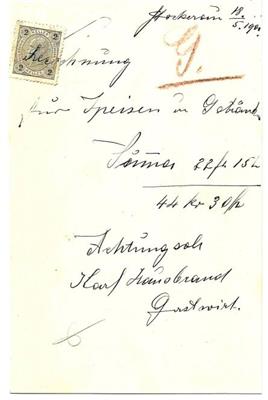 Stockerau 18./5. 190
G.
Rechnung
für Speisen u Getränke
Summa 22 fl 15 k
44 Kr 30 h
Achtungsvoll
Karl Hausbrand
Gastwirt.